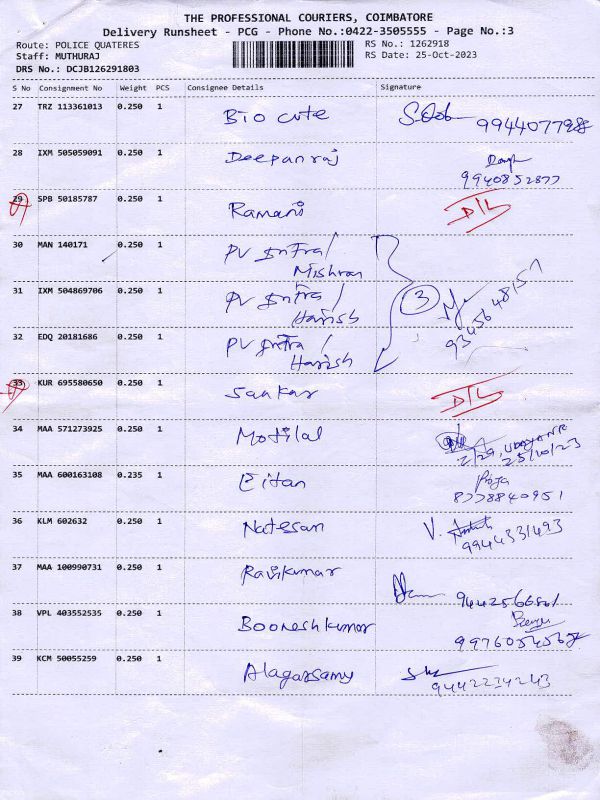 THE PROFESSIONAL COURIERS, COIMBATORE
Delivery Runsheet - PCG - Phone No.:0422-3505555 - Page No.:3
Route: POLICE QUATERES RS No.: 1262918
Staff: MUTHURAJ RS Date: 25-Oct-2023
DRS No.: DCJB126291803
S No Consignment No Weight PCS Consignee Details Signature
27 TRZ 113361013 0.250 1 Bio cute
28 IXM 505059091 0.250 1 Deepanraj
9940852877
29 SPB 50185787 0.250 1 Ramani D/L
30 MAN 140171 0.250 1 PV Infra/
Mishran
31 IXM 504869706 0.250 1 PV Infra/ 3
Harish 9345648157
32 EDQ 20181686 0.250 1 PV Infra/
Harish
33 KUR 695580650 0.250 1 Saakar D/L
34 MAA 571273925 0.250 1 Motilal
25/10/23
35 MAA 600163108 0.235 1 Eitan
8778840951
36 KLM 602632 0.250 1 Natesan V.
9944331493
37 MAA 100990731 0.250 1 Ravikumar
38 VPL 403552535 0.250 1 Booneshkumar
39 KCM 50055259 0.250 1 Alagarsamy
9442234243